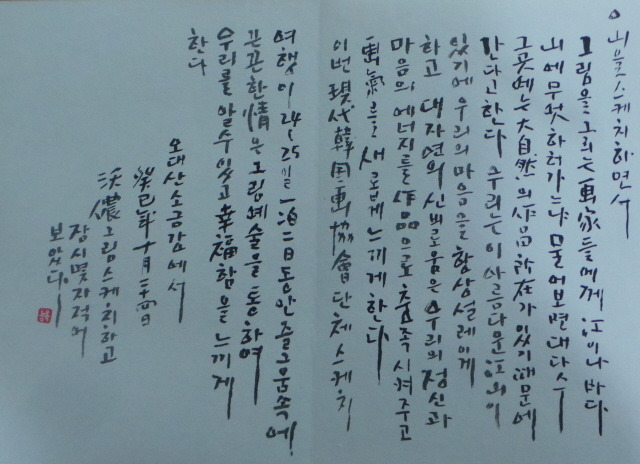 이 山을 스케치 하면서
그림을 그리는 画家들에게 江이나 바다
山에 무엇하러 가느냐 물어보면 대다수
그곳에는 大自然의 作品所在가 있기 때문에
간다고 한다 우리는 이 아름다운 江山이
있기에 우리의 마음을 항상 설레이게
하고 대자연의 신비로움은 우리의 정신과
마음의 에너지를 作品으로 충족시켜 주고
画氣를 새롭게 느끼게 한다
이번 現代韓国画協會 단체스케치
여행이 24~25일 一泊二日 동안 즐거움 속에
끈끈한 情은 그림예술을 통하여
우리를 알 수 있고 幸福함을 느끼게
한다
오대산 소금강에서
癸巳年 十月 二十四日
沃儂 그림 스케치하고
잠시 몇자 적어
보았다.